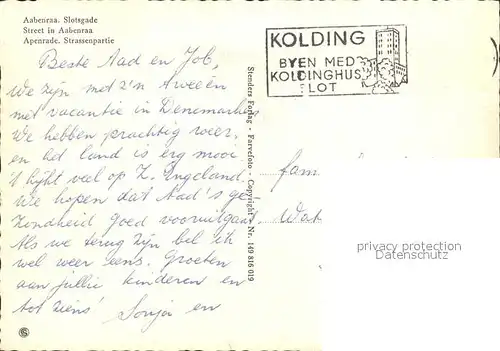 Aabenraa. Slotsgade
Street in Aabenraa
Apenrade. Strassenpartie
Beste Aad en Job,
We zijn met z'n tweeën
met vacantie in Denemarken
We hebben prachtig weer,
en het land is erg mooi
't lijkt veel op Z. Engeland.
We hopen dat Aad's ge-
zondheid goed vooruitgaat.
Als we terug zijn bel ik
wel weer eens. Groeten
aan jullie kinderen en
tot ziens! Sonja en
Stenders Forlag - Farvefoto - Copyright - Nr. 149 816 019
KOLDING
BYEN MED
KOLDINGHUS
SLOT
fam
privacy protection
Datenschutz